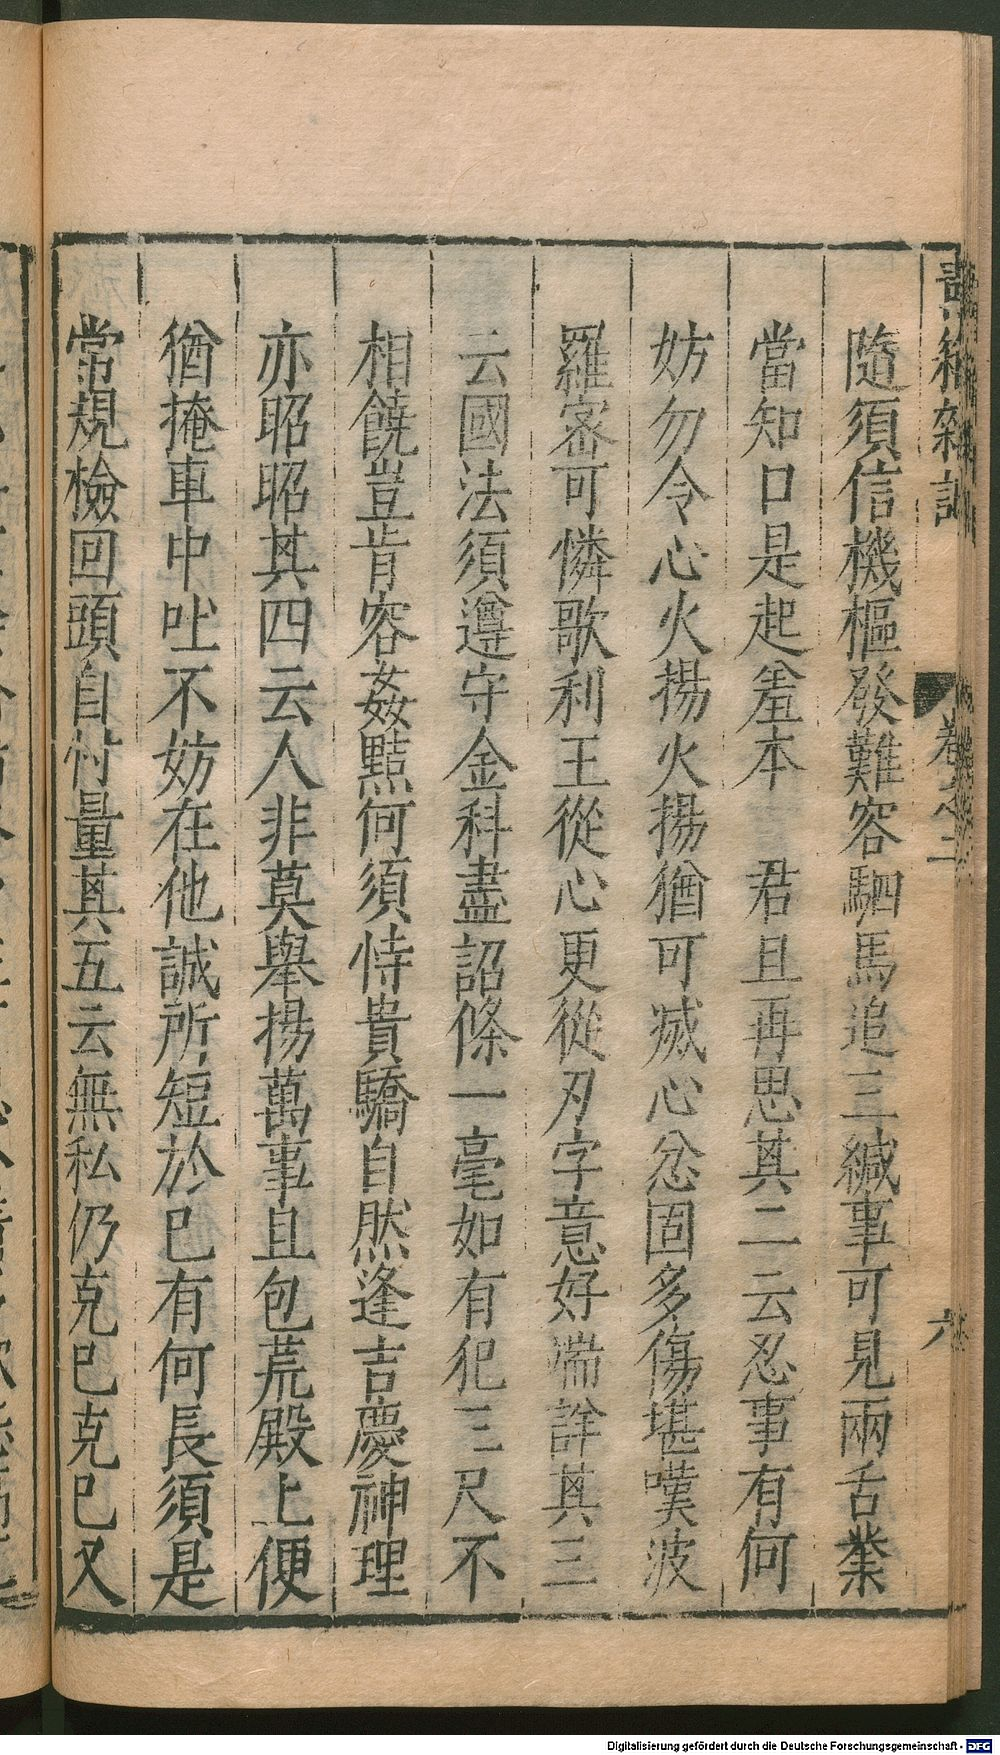 隨須信機樞發難容駟馬追三緘事可見兩舌業
當知口是起羞本　君且再思其二云忍事有何
妨勿令心火揚火揚猶可滅心忿固多傷堪嘆波
羅密可憐歌利王從心更從刃字意好端詳其三
云國法須遵守金科盡詔條一毫如有犯三尺不
相饒豈肯容姦黠何須恃貴驕自然逢吉慶神理
亦昭昭其四云人非莫舉揚萬事且包荒殿上便
猶掩車中吐不妨在他誠所短於己有何長須是
常規檢回頭自忖量其五云無私仍克己克己又
卷之二
六
Digitalisierung gefördert durch die Deutsche Forschungsgemeinschaft - DFG